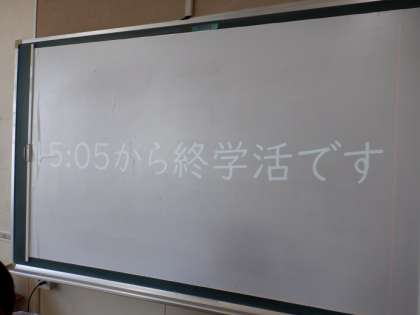 15:05から終学活です